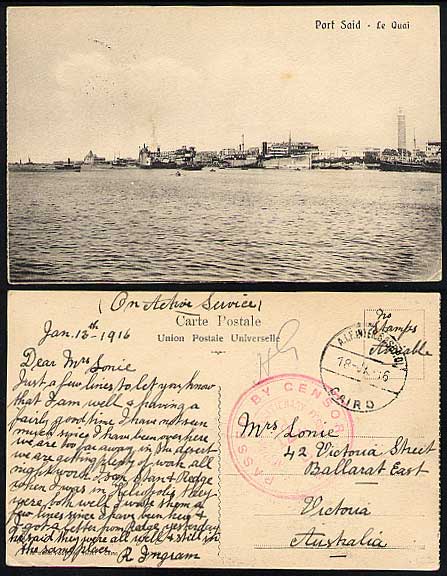 Port Said - Le Quai
(On Active Service)
Carte Postale
Union Postale Universelle
No
Stamps
Available
Jan. 13th 1916
Dear Mrs Lonie
Just a few lines to let you know
that I am well & having a
fairly good time I have not seen
much since I have been over here
we are too far away in the desert
we are getting plenty of work all
night work I saw Stan & Redge
when I was in Heliopolis they
were both well I wrote them a
few lines since I have been here &
I got a letter from Redge yesterday
he said they were all well & still in
the same place
R Ingram
PASSED BY CENSOR
CAIRO
Mrs Lonie
42 Victoria Street
Ballarat East
Victoria
Australia